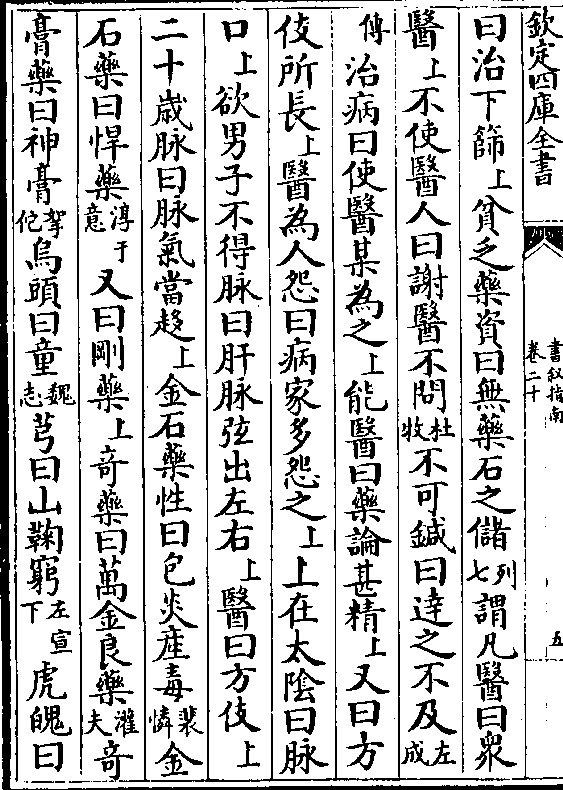 欽定四庫全書
書叙指南
卷二十
五
曰治下篩上貧乏藥資曰無藥石之儲列七謂凡醫曰衆
醫上不使醫人曰謝醫不問杜牧不可鍼曰達之不及左成
傳治病曰使醫某為之上能醫曰藥論甚精上又曰方
伎所長上醫為人怨曰病家多怨之上上在太陰曰脉
口上欲男子不得脉曰肝脉弦出左右上醫曰方伎上
二十歳脉曰脉氣當趍上金石藥性曰包炎産毒裴憐金
石藥曰悍藥淳于意又曰剛藥上奇藥曰萬金良藥灌夫奇
膏藥曰神膏挐佗烏頭曰童魏志芎曰山鞠窮左宣下虎魄曰